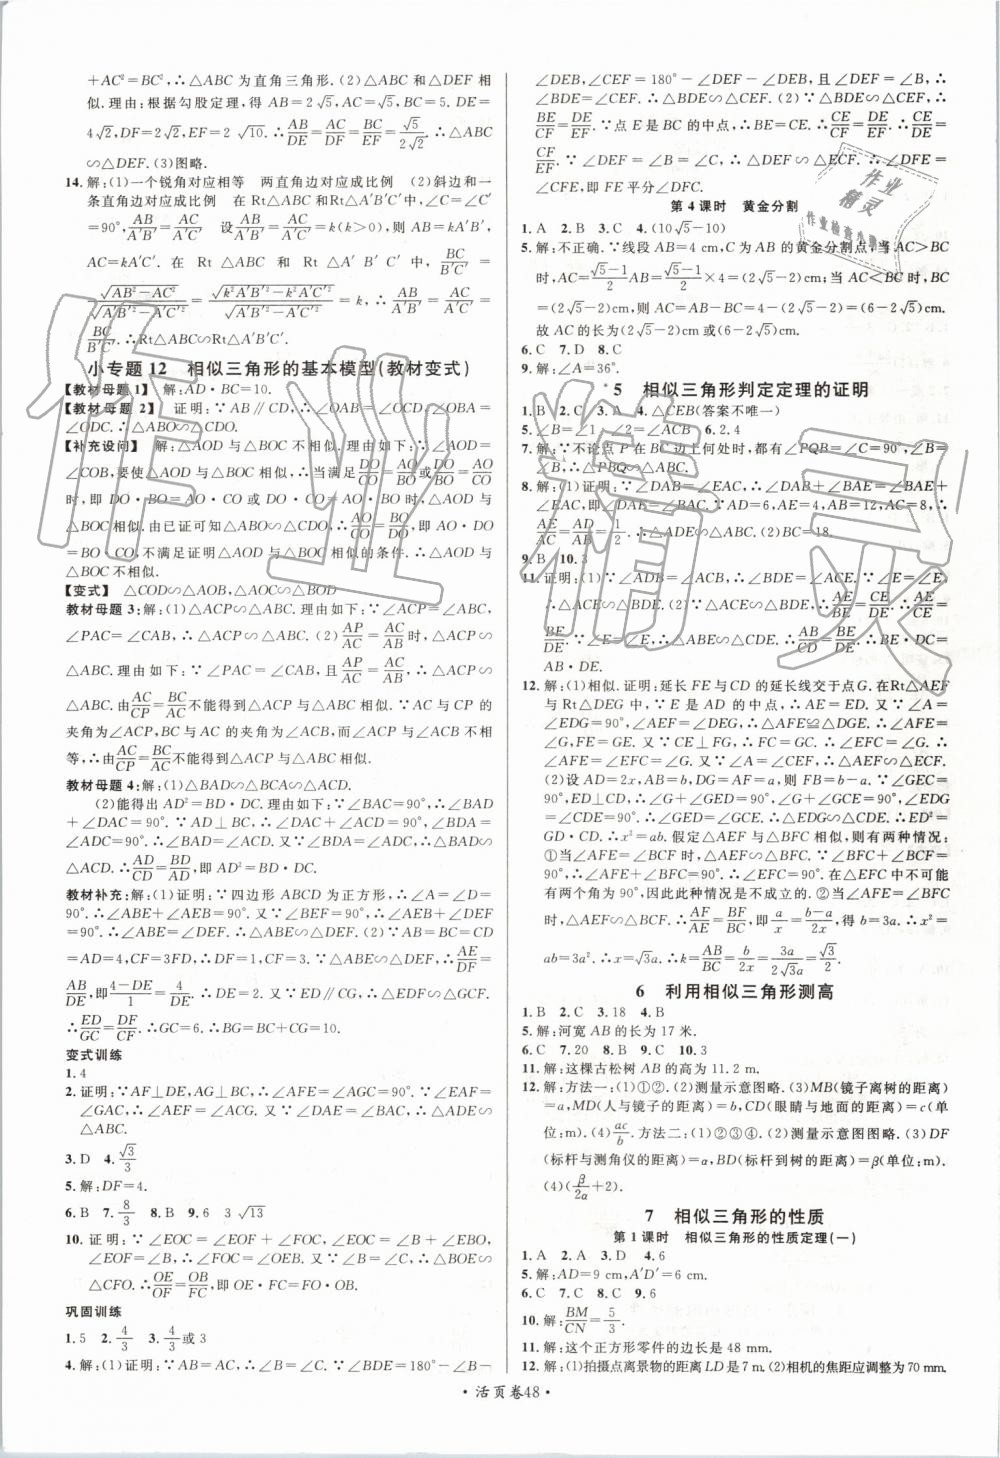 +AC²=BC²,∴△ABC 为直角三角形.(2)△ABC 和△DEF 相
似.理由:根据勾股定理,得 AB=2√5,AC=√5,BC=5. DE=
4√2,DF=2√2,EF=2√10.∴AB/DE=AC/DF=BC/EF=√5/(2√2).∴△ABC
∽△DEF.(3)图略.
14.解:(1)一个锐角对应相等 两直角边对应成比例 (2)斜边和一
条直角边对应成比例 在 Rt△ABC 和 Rt△A′B′C′中,∠C=∠C′
=90°,AB/A′B′=AC/A′C′ 设AB/A′B′=AC/A′C′=k(k>0),则 AB=kA′B′,
AC=kA′C′. 在 Rt△ABC 和 Rt△A′B′C′中,BC/B′C′=
√(AB²−AC²)/√(A′B′²−A′C′²)=√(k²A′B′²−k²A′C′²)/√(A′B′²−A′C′²)=k,∴AB/A′B′=AC/A′C′=
BC/B′C′.∴Rt△ABC∽Rt△A′B′C′.
小专题 12 相似三角形的基本模型(教材变式)
【教材母题 1】 解:AD·BC=10.
【教材母题 2】 证明:∵AB∥CD,∴∠OAB=∠OCD,∠OBA=
∠ODC.∴△ABO∽△CDO.
【补充设问】 解:△AOD 与△BOC 不相似.理由如下:∵∠AOD=
∠COB,要使△AOD 与△BOC 相似,∴当满足DO/CO=AO/BO或DO/BO=AO/CO
时,即 DO·BO=AO·CO 或 DO·CO=AO·BO 时,△AOD 与
△BOC 相似.由已证可知△ABO∽△CDO,∴AO/CO=BO/DO,即 AO·DO
=BO·CO,不满足证明△AOD 与△BOC 相似的条件.∴△AOD
与△BOC 不相似.
【变式】 △COD∽△AOB,△AOC∽△BOD
教材母题 3:解:(1)△ACP∽△ABC,理由如下:∵∠ACP=∠ABC,
∠PAC=∠CAB,∴△ACP∽△ABC.(2)AP/AC=AC/AB时,△ACP∽
△ABC.理由如下:∵∠PAC=∠CAB,且AP/AC=AC/AB,∴△ACP∽
△ABC.由AC/CP=BC/AC不能得到△ACP∽△ABC.∵AC 与 CP 的
夹角为∠ACP,BC 与 AC 的夹角为∠ACB,而∠ACP 与∠ACB 不相
等,∴由AC/CP=BC/AC不能得到△ACP∽△ABC.
教材母题 4:解:(1)△ABD∽△BCA∽△ACD.
(2)能得出 AD²=BD·DC.理由如下:∵∠BAC=90°,∴∠BAD
+∠DAC=90°.∵AD⊥BC,∴∠DAC+∠ACD=90°,∠BDA=
∠ADC=90°.∴∠BAD=∠ACD.又∵∠BDA=∠ADC,∴△BAD∽
△ACD.∴AD/CD=BD/AD,即 AD²=BD·DC.
教材补充:解:(1)证明:∵四边形 ABCD 为正方形,∴∠A=∠D=
90°.∴∠ABE+∠AEB=90°.又∵∠BEF=90°,∴∠AEB+∠DEF
=90°.∴∠ABE=∠DEF.∴△ABE∽△DEF.(2)∵AB=BC=CD
=AD=4,CF=3FD,∴DF=1,CF=3.∵△ABE∽△DEF,∴AE/DF=
AB/DE,即(4−DE)/1=4/DE.∴DE=2.又∵ED∥CG,∴△EDF∽△GCF.
∴ED/GC=DF/CF.∴GC=6.∴BG=BC+GC=10.
变式训练
1.4
2.证明:∵AF⊥DE,AG⊥BC,∴∠AFE=∠AGC=90°.∵∠EAF=
∠GAC,∴∠AEF=∠ACG.又∵∠DAE=∠BAC,∴△ADE∽
△ABC.
3.D 4.√3/3
5.解:DF=4.
6.B 7.8/3 8.B 9.6 3√13
10.证明:∵∠EOC=∠EOF+∠FOC,∠EOC=∠EBO+∠BEO,
∠EOF=∠B,∴∠FOC=∠OEB.又∵∠B=∠C,∴△BOE∽
△CFO.∴OE/OF=OB/FC,即OE/OB=OF/FC.
巩固训练
1.5 2.4/3 3.4/3或 3
4.解:(1)证明:∵AB=AC,∴∠B=∠C.∵∠BDE=180°−∠B−
∠DEB,∠CEF=180°−∠DEF−∠DEB,且∠DEF=∠B,∴
∠BDE=∠CEF.∴△BDE∽△CEF.(2)∵△BDE∽△CEF,∴
BE/CF=DE/EF.∵点 E 是 BC 的中点,∴BE=CE.∴CE/CF=DE/EF.∴CE/DE=
CF/EF.∵∠DEF=∠B=∠C,∴△DEF∽△ECF.∴∠DFE=
∠CFE,即 FE 平分∠DFC.
第 4 课时 黄金分割
1.A 2.B 3.C 4.(10√5−10)
5.解:不正确.∵线段 AB=4 cm,C 为 AB 的黄金分割点,当 AC>BC
时,AC=(√5−1)/2 AB=(√5−1)/2×4=(2√5−2)cm;当 AC<BC 时,
BC=(2√5−2)cm,则 AC=AB−BC=4−(2√5−2)=(6−2√5)cm.
故 AC 的长为(2√5−2)cm 或(6−2√5)cm.
6.C 7.D 8.C
9.解:∠A=36°.
5 相似三角形判定定理的证明
1.B 2.C 3.A 4.△CEB(答案不唯一)
5.∠B=∠1 ∠2=∠ACB 6.2.4
7.解:∵不论点 P 在 BC 边上何处时,都有∠PQB=∠C=90°,∠B=
∠B,∴△PBQ∽△ABC.
8.解:(1)证明:∵∠DAB=∠EAC,∴∠DAB+∠BAE=∠BAE+
∠EAC,即∠DAE=∠BAC.∵AD=6,AE=4,AB=12,AC=8,∴
AE/AC=AD/AB=1/2.∴△ADE∽△ABC.(2)BC=18.
9.B 10.3
11.证明:(1)∵∠ADB=∠ACB,∴∠BDE=∠ACE.又∵∠E=∠E,
∴△ACE∽△BDE.(2)∵△ACE∽△BDE,∴AE/BE=CE/DE.∴AE/CE=
BE/DE.∵∠E=∠E,∴△ABE∽△CDE.∴AB/CD=BE/DE.∴BE·DC=
AB·DE.
12.解:(1)相似.证明:延长 FE 与 CD 的延长线交于点 G.在 Rt△AEF
与 Rt△DEG 中,∵E 是 AD 的中点,∴AE=ED.又∵∠A=
∠EDG=90°,∠AEF=∠DEG,∴△AFE≌△DGE.∴∠AFE=
∠G,FE=GE.又∵CE⊥FG,∴FC=GC.∴∠EFC=∠G.∴
∠AFE=∠EFC.又∵∠A=∠FEC=90°,∴△AEF∽△ECF.
(2)设 AD=2x,AB=b,DG=AF=a,则 FB=b−a.∵∠GEC=
90°,ED⊥CD,∴∠G+∠GED=90°,∠G+∠GCE=90°,∠EDG
=∠CDE=90°.∴∠GED=∠GCE.∴△EDG∽△CDE.∴ED²=
GD·CD.∴x²=ab.假定△AEF 与△BFC 相似,则有两种情况:
①当∠AFE=∠BCF 时,△AEF∽△BFC.∵∠BFC+∠BCF=
90°,∴∠AFE+∠BFC=90°.∴∠EFC=90°.在△EFC 中不可能
有两个角为 90°,因此此种情况是不成立的.②当∠AFE=∠BFC
时,△AEF∽△BCF.∴AF/AE=BF/BC,即a/x=(b−a)/2x,得 b=3a.∴x²=
ab=3a².∴x=√3a.∴k=AB/BC=b/2x=3a/(2√3a)=√3/2.
6 利用相似三角形测高
1.B 2.C 3.18 4.B
5.解:河宽 AB 的长为 17 米.
6.C 7.20 8.B 9.C 10.3
11.解:这棵古松树 AB 的高为 11.2 m.
12.解:方法一:(1)①②.(2)测量示意图略.(3)MB(镜子离树的距离)
=a,MD(人与镜子的距离)=b,CD(眼睛与地面的距离)=c(单
位:m).(4)ac/b. 方法二:(1)②③④.(2)测量示意图图略.(3)DF
(标杆与测角仪的距离)=α,BD(标杆到树的距离)=β(单位:m).
(4)(β/2α+2).
7 相似三角形的性质
第 1 课时 相似三角形的性质定理(一)
1.A 2.A 3.D 4.6
5.解:AD=9 cm,A′D′=6 cm.
6.C 7.C 8.C 9.6
10.解:BM/CN=5/3.
11.解:这个正方形零件的边长是 48 mm.
12.解:(1)拍摄点离景物的距离 LD 是 7 m.(2)相机的焦距应调整为 70 mm.
·活页卷48·
作业精灵
作业
精灵